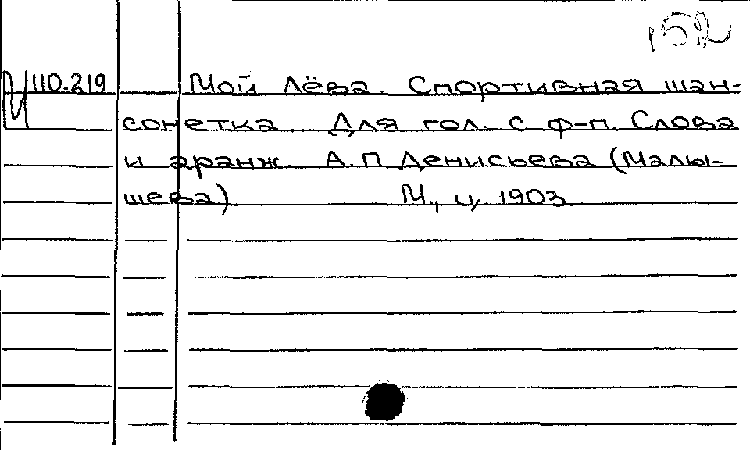 152
И 110.219 Мой Лёва. Спортивная шан-
сонетка. Для гол. с ф-п. Слова
и аранж. А.П. Денисьева (Малы-
шева). М., ц. 1903